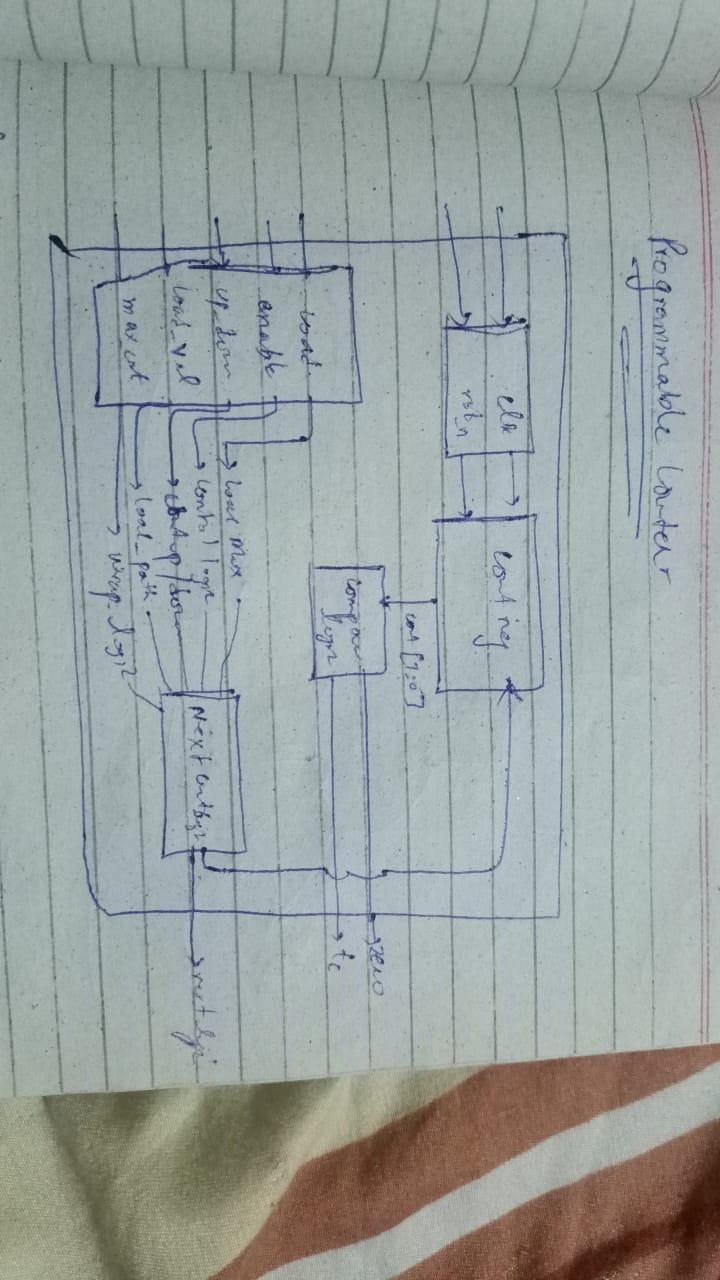 Programmable Counter
clk
rst_n
count reg
cnt [7:0]
compare
logic
zero
tc
load
enable
up_down
load_val
max cnt
load mux
control logic
count up/down
load_path
wrap_logic
Next cnt logic